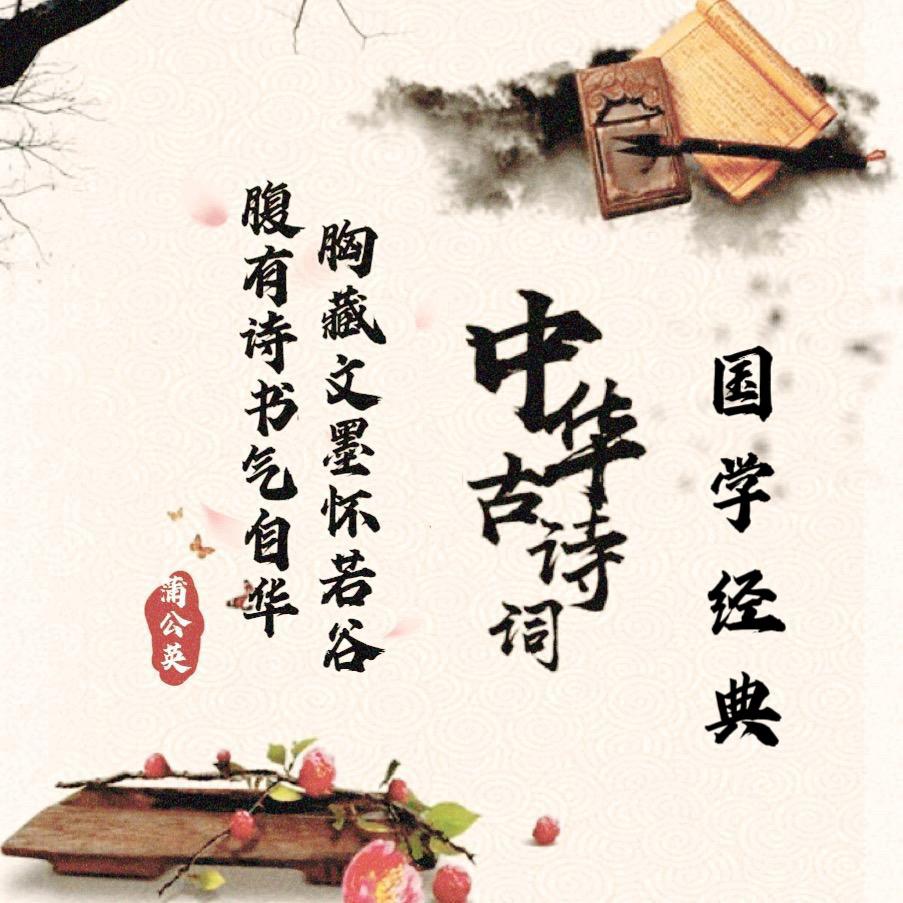 国学经典
中华古诗词
胸藏文墨怀若谷
腹有诗书气自华
蒲公英